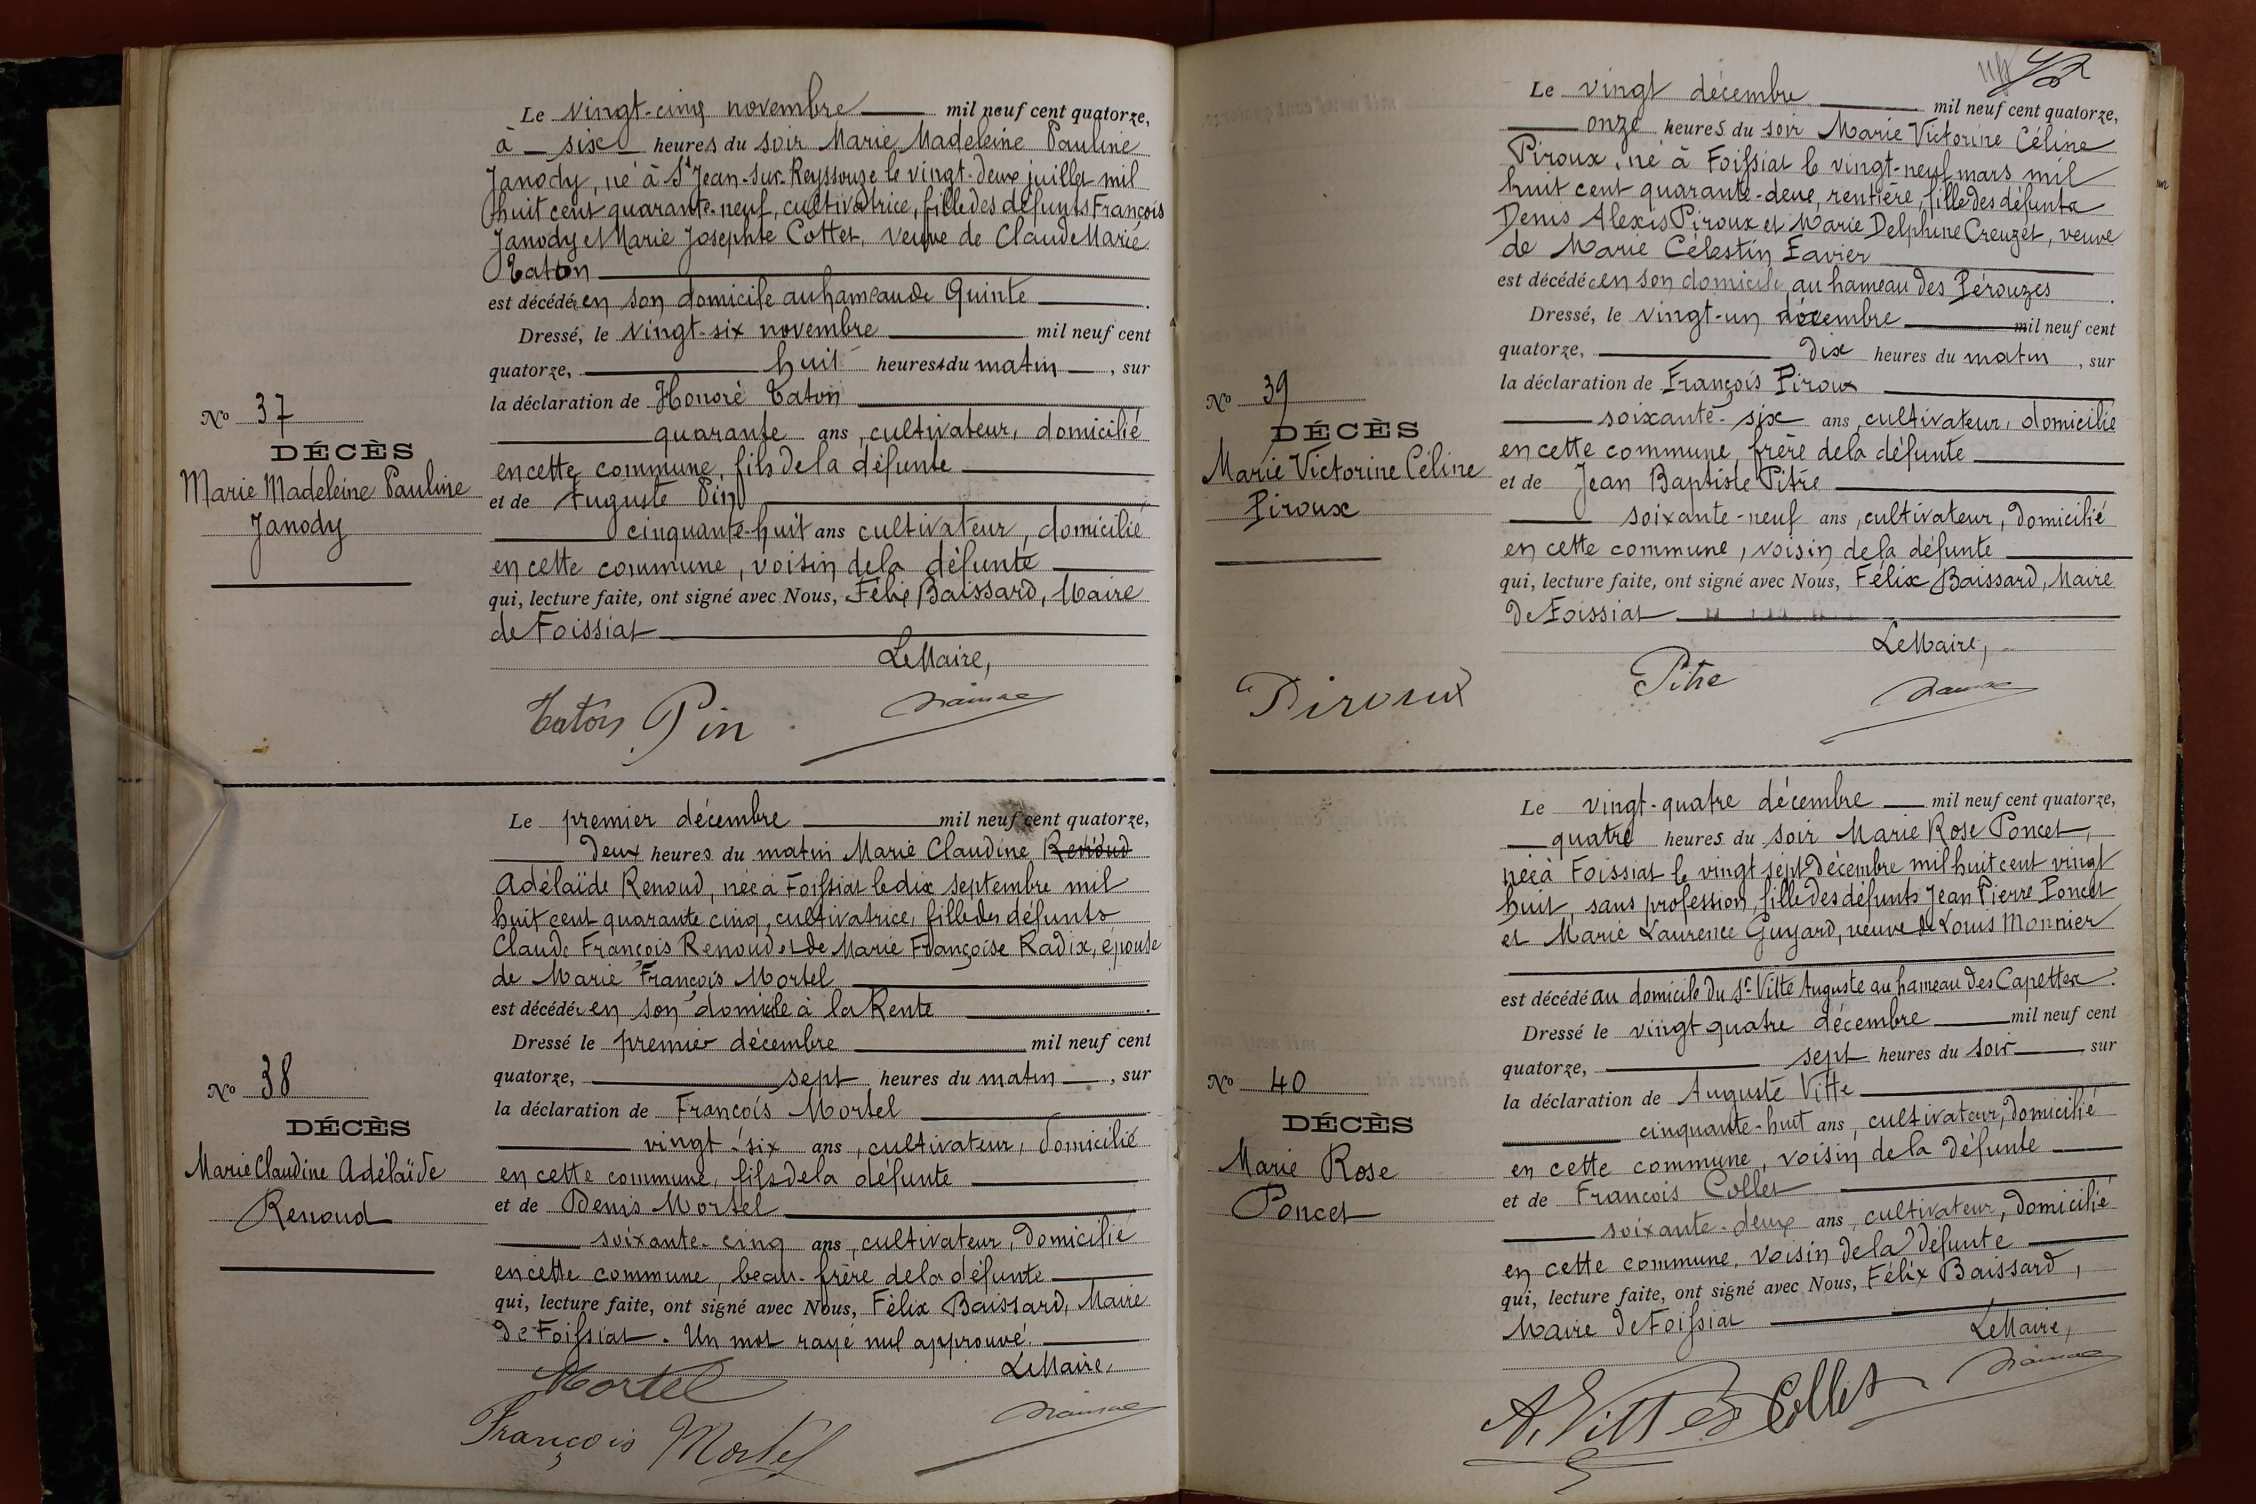 Le vingt-cinq novembre mil neuf cent quatorze,
à six heures du soir Marie Madeleine Pauline
Janody, né à St Jean-sur-Reyssouze le vingt-deux juillet mil
huit cent quarante-neuf, cultivatrice, fille des défunts François
Janody et Marie Josephte Cottet, veuve de Claude Marie
Caton
est décédée en son domicile au hameau de Quinte.
Dressé, le vingt-six novembre mil neuf cent
quatorze, huit heures du matin, sur
la déclaration de Honoré Caton
quarante ans, cultivateur, domicilié
en cette commune, fils de la défunte
et de Auguste Pin
cinquante-huit ans cultivateur, domicilié
en cette commune, voisin de la défunte
qui, lecture faite, ont signé avec Nous, Félix Baissard, Maire
de Foissiat
Le Maire,
Caton Pin
No 37
DÉCÈS
Marie Madeleine Pauline
Janody
Le premier décembre mil neuf cent quatorze,
deux heures du matin Marie Claudine Renoud
Adélaïde Renoud, née à Foissiat le dix septembre mil
huit cent quarante cinq, cultivatrice, fille des défunts
Claude François Renoud et de Marie Françoise Radix, épouse
de Marie François Mortel
est décédée en son domicile à la Rente.
Dressé le premier décembre mil neuf cent
quatorze, sept heures du matin, sur
la déclaration de François Mortel
vingt-six ans, cultivateur, domicilié
en cette commune, fils de la défunte
et de Denis Mortel
soixante-cinq ans, cultivateur, domicilié
en cette commune, beau-frère de la défunte
qui, lecture faite, ont signé avec Nous, Félix Baissard, Maire
de Foissiat. Un mot rayé nul approuvé.
Le Maire,
Mortel
François Mortel
No 38
DÉCÈS
Marie Claudine Adélaïde
Renoud
Le vingt décembre mil neuf cent quatorze,
onze heures du soir Marie Victorine Céline
Piroux, né à Foissiat le vingt-neuf mars mil
huit cent quarante-deux, rentière, fille des défunts
Denis Alexis Piroux et Marie Delphine Creuzet, veuve
de Marie Célestin Favier
est décédée en son domicile, au hameau des Pérouzes.
Dressé, le vingt-un décembre mil neuf cent
quatorze, dix heures du matin, sur
la déclaration de François Piroux
soixante-six ans, cultivateur, domicilié
en cette commune, frère de la défunte
et de Jean Baptiste Pitre
soixante-neuf ans, cultivateur, domicilié
en cette commune, voisin de la défunte
qui, lecture faite, ont signé avec Nous, Félix Baissard, Maire
de Foissiat
Le Maire,
Piroux Pitre
No 39
DÉCÈS
Marie Victorine Céline
Piroux
Le vingt-quatre décembre mil neuf cent quatorze,
quatre heures du soir Marie Rose Poncet,
née à Foissiat le vingt sept décembre mil huit cent vingt
huit, sans profession, fille des défunts Jean Pierre Poncet
et Marie Laurence Guyard, veuve de Louis Monnier
est décédé au domicile du Sr Vitte Auguste au hameau des Capettes.
Dressé le vingt quatre décembre mil neuf cent
quatorze, sept heures du soir sur
la déclaration de Auguste Vitte
cinquante-huit ans, cultivateur, domicilié
en cette commune, voisin de la défunte
et de François Collet
soixante-deux ans, cultivateur, domicilié
en cette commune, voisin de la défunte
qui, lecture faite, ont signé avec Nous, Félix Baissard,
Maire de Foissiat
Le Maire,
A. Vitte Collet
No 40
DÉCÈS
Marie Rose
Poncet